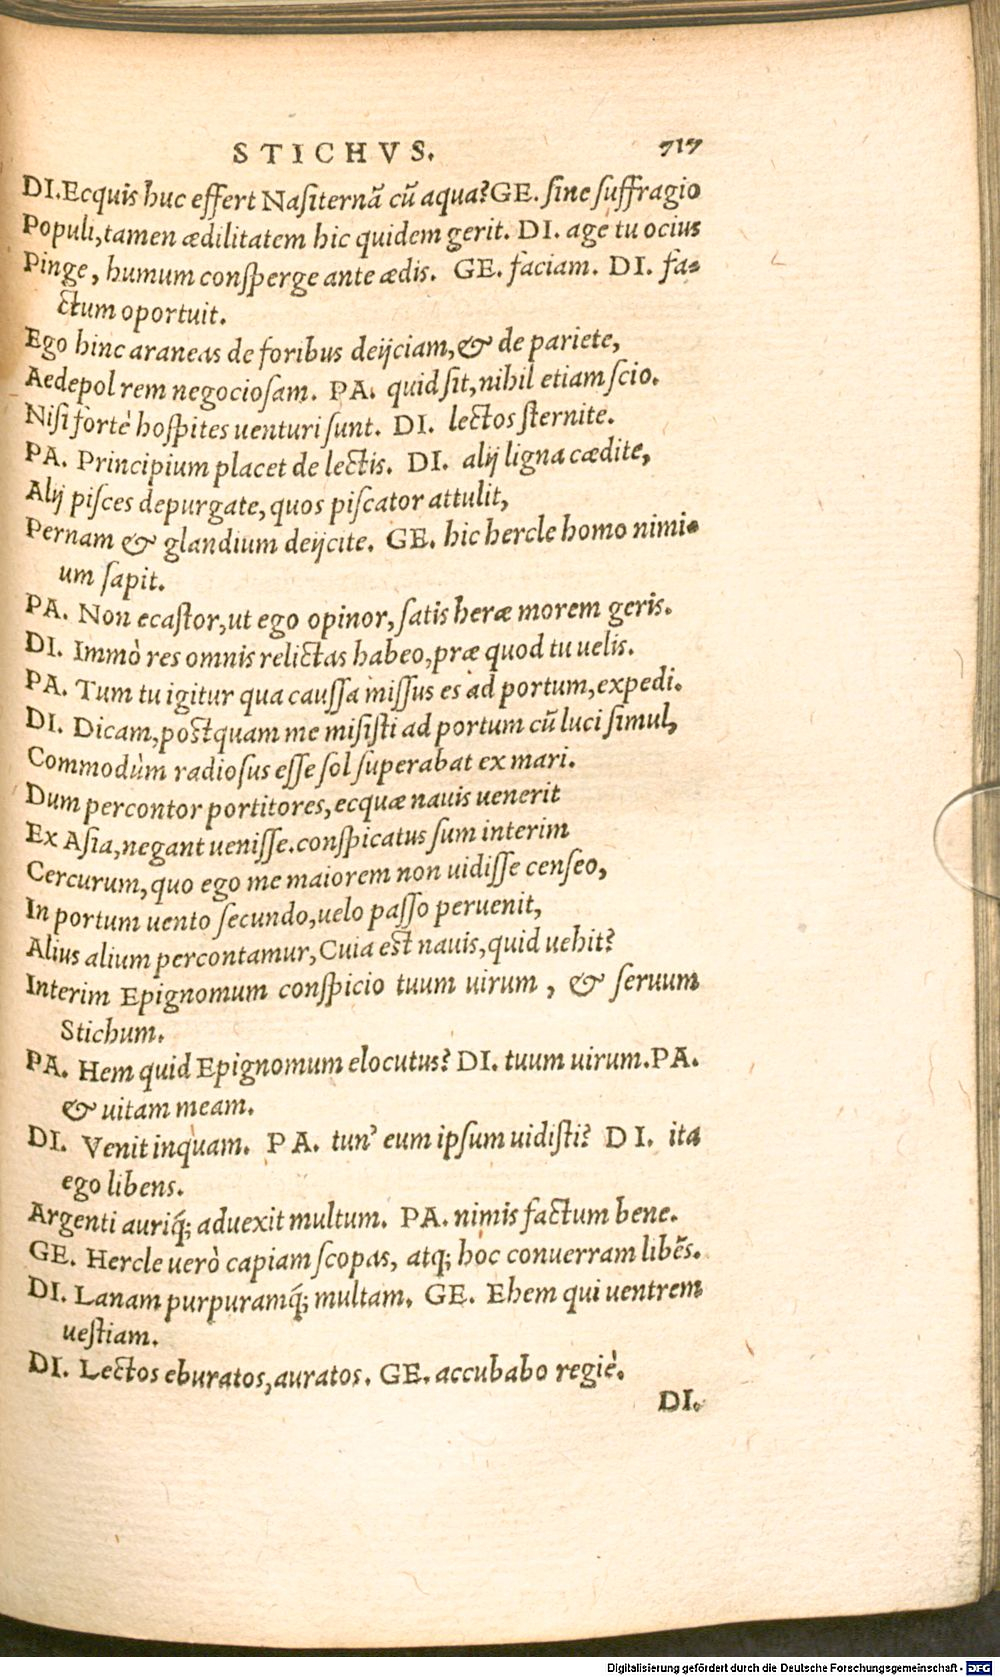 STICHVS. 717
DI. Ecquis huc effert Nasiternā cū aqua? GE. sine suffragio
Populi, tamen ædilitatem hic quidem gerit. DI. age tu ocius
Pinge, humum consperge ante ædis. GE. faciam. DI. fa-
ctum oportuit.
Ego hinc araneas de foribus deijciam, & de pariete,
Aedepol rem negociosam. PA. quid sit, nihil etiam scio.
Nisi fortè hospites uenturi sunt. DI. lectos sternite.
PA. Principium placet de lectis. DI. alij ligna cædite,
Alij pisces depurgate, quos piscator attulit,
Pernam & glandium deijcite. GE. hic hercle homo nimi-
um sapit.
PA. Non ecastor, ut ego opinor, satis heræ morem geris.
DI. Immò res omnis relictas habeo, præ quod tu uelis.
PA. Tum tu igitur qua caussa missus es ad portum, expedi.
DI. Dicam, postquam me misisti ad portum cū luci simul,
Commodùm radiosus esse sol superabat ex mari.
Dum percontor portitores, ecquæ nauis uenerit
Ex Asia, negant uenisse. conspicatus sum interim
Cercurum, quo ego me maiorem non uidisse censeo,
In portum uento secundo, uelo passo peruenit,
Alius alium percontamur, Cuia est nauis, quid uehit?
Interim Epignomum conspicio tuum uirum, & seruum
Stichum.
PA. Hem quid Epignomum elocutus? DI. tuum uirum. PA.
& uitam meam.
DI. Venit inquam. PA. tun' eum ipsum uidisti? DI. ita
ego libens.
Argenti auriq́; aduexit multum. PA. nimis factum bene.
GE. Hercle uerò capiam scopas, atq; hoc conuerram libēs.
DI. Lanam purpuramq́; multam. GE. Ehem qui uentrem
uestiam.
DI. Lectos eburatos, auratos. GE. accubabo regiè.
DI.
Digitalisierung gefördert durch die Deutsche Forschungsgemeinschaft - DFG